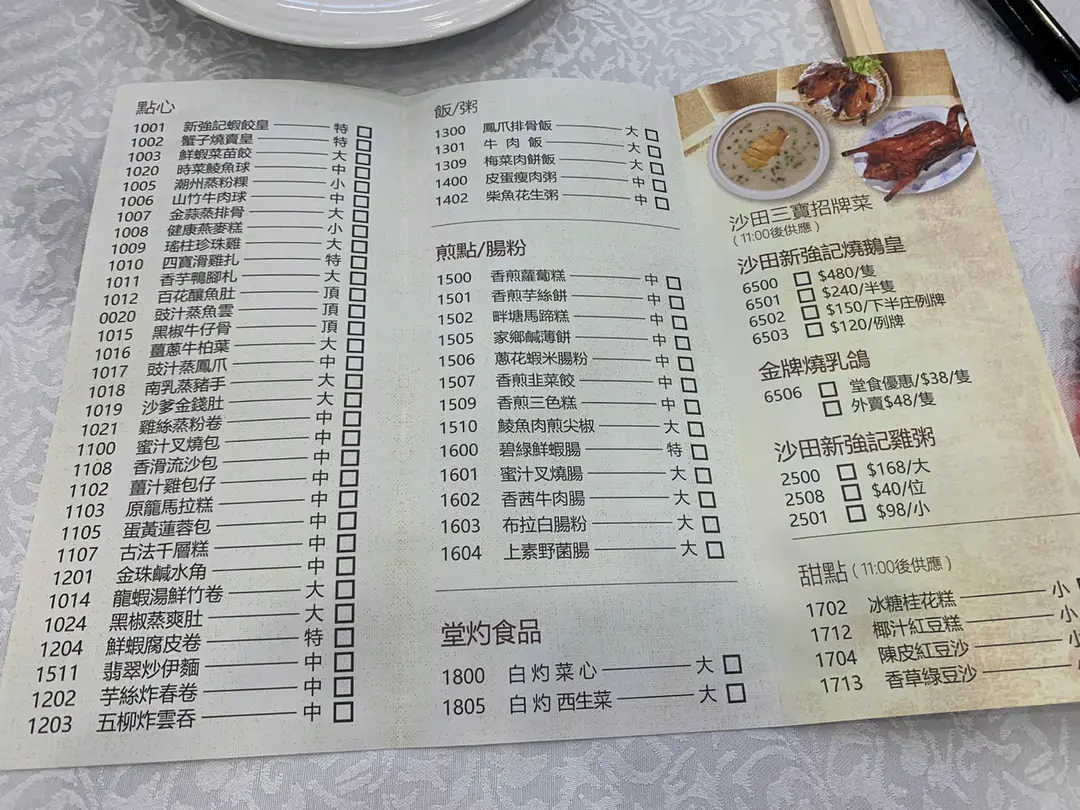 點心
1001 新強記蝦餃皇 特
1002 蟹子燒賣皇 特
1003 鮮蝦菜苗餃 大
1020 時菜鯪魚球 中
1005 潮州蒸粉粿 小
1006 山竹牛肉球 中
1007 金蒜蒸排骨 大
1008 健康燕麥糕 小
1009 瑤柱珍珠雞 大
1010 四寶滑雞扎 特
1011 香芋鴨腳札 大
1012 百花釀魚肚 頂
0020 豉汁蒸魚雲 頂
1015 黑椒牛仔骨 頂
1016 薑蔥牛柏葉 大
1017 豉汁蒸鳳爪 中
1018 南乳蒸豬手 大
1019 沙爹金錢肚 大
1021 雞絲蒸粉卷 中
1100 蜜汁叉燒包 中
1108 香滑流沙包 中
1102 薑汁雞包仔 中
1103 原籠馬拉糕 中
1105 蛋黃蓮蓉包 中
1107 古法千層糕 中
1201 金珠鹹水角 中
1014 龍蝦湯鮮竹卷 大
1024 黑椒蒸爽肚 大
1204 鮮蝦腐皮卷 特
1511 翡翠炒伊麵 中
1202 芋絲炸春卷 中
1203 五柳炸雲吞 中
飯/粥
1300 鳳爪排骨飯 大
1301 牛肉飯 大
1309 梅菜肉餅飯 大
1400 皮蛋瘦肉粥 中
1402 柴魚花生粥 中
煎點/腸粉
1500 香煎蘿蔔糕 中
1501 香煎芋絲餅 中
1502 畔塘馬蹄糕 中
1505 家鄉鹹薄餅 中
1506 蔥花蝦米腸粉 中
1507 香煎韭菜餃 中
1509 香煎三色糕 中
1510 鯪魚肉煎尖椒 大
1600 碧綠鮮蝦腸 特
1601 蜜汁叉燒腸 大
1602 香茜牛肉腸 大
1603 布拉白腸粉 大
1604 上素野菌腸 大
堂灼食品
1800 白灼菜心 大
1805 白灼西生菜 大
沙田三寶招牌菜
(11:00後供應)
沙田新強記燒鵝皇
6500 $480/隻
6501 $240/半隻
6502 $150/下半庄例牌
6503 $120/例牌
金牌燒乳鴿
6506 堂食優惠/$38/隻
外賣$48/隻
沙田新強記雞粥
2500 $168/大
2508 $40/位
2501 $98/小
甜點 (11:00後供應)
1702 冰糖桂花糕 小
1712 椰汁紅豆糕 小
1704 陳皮紅豆沙
1713 香草綠豆沙